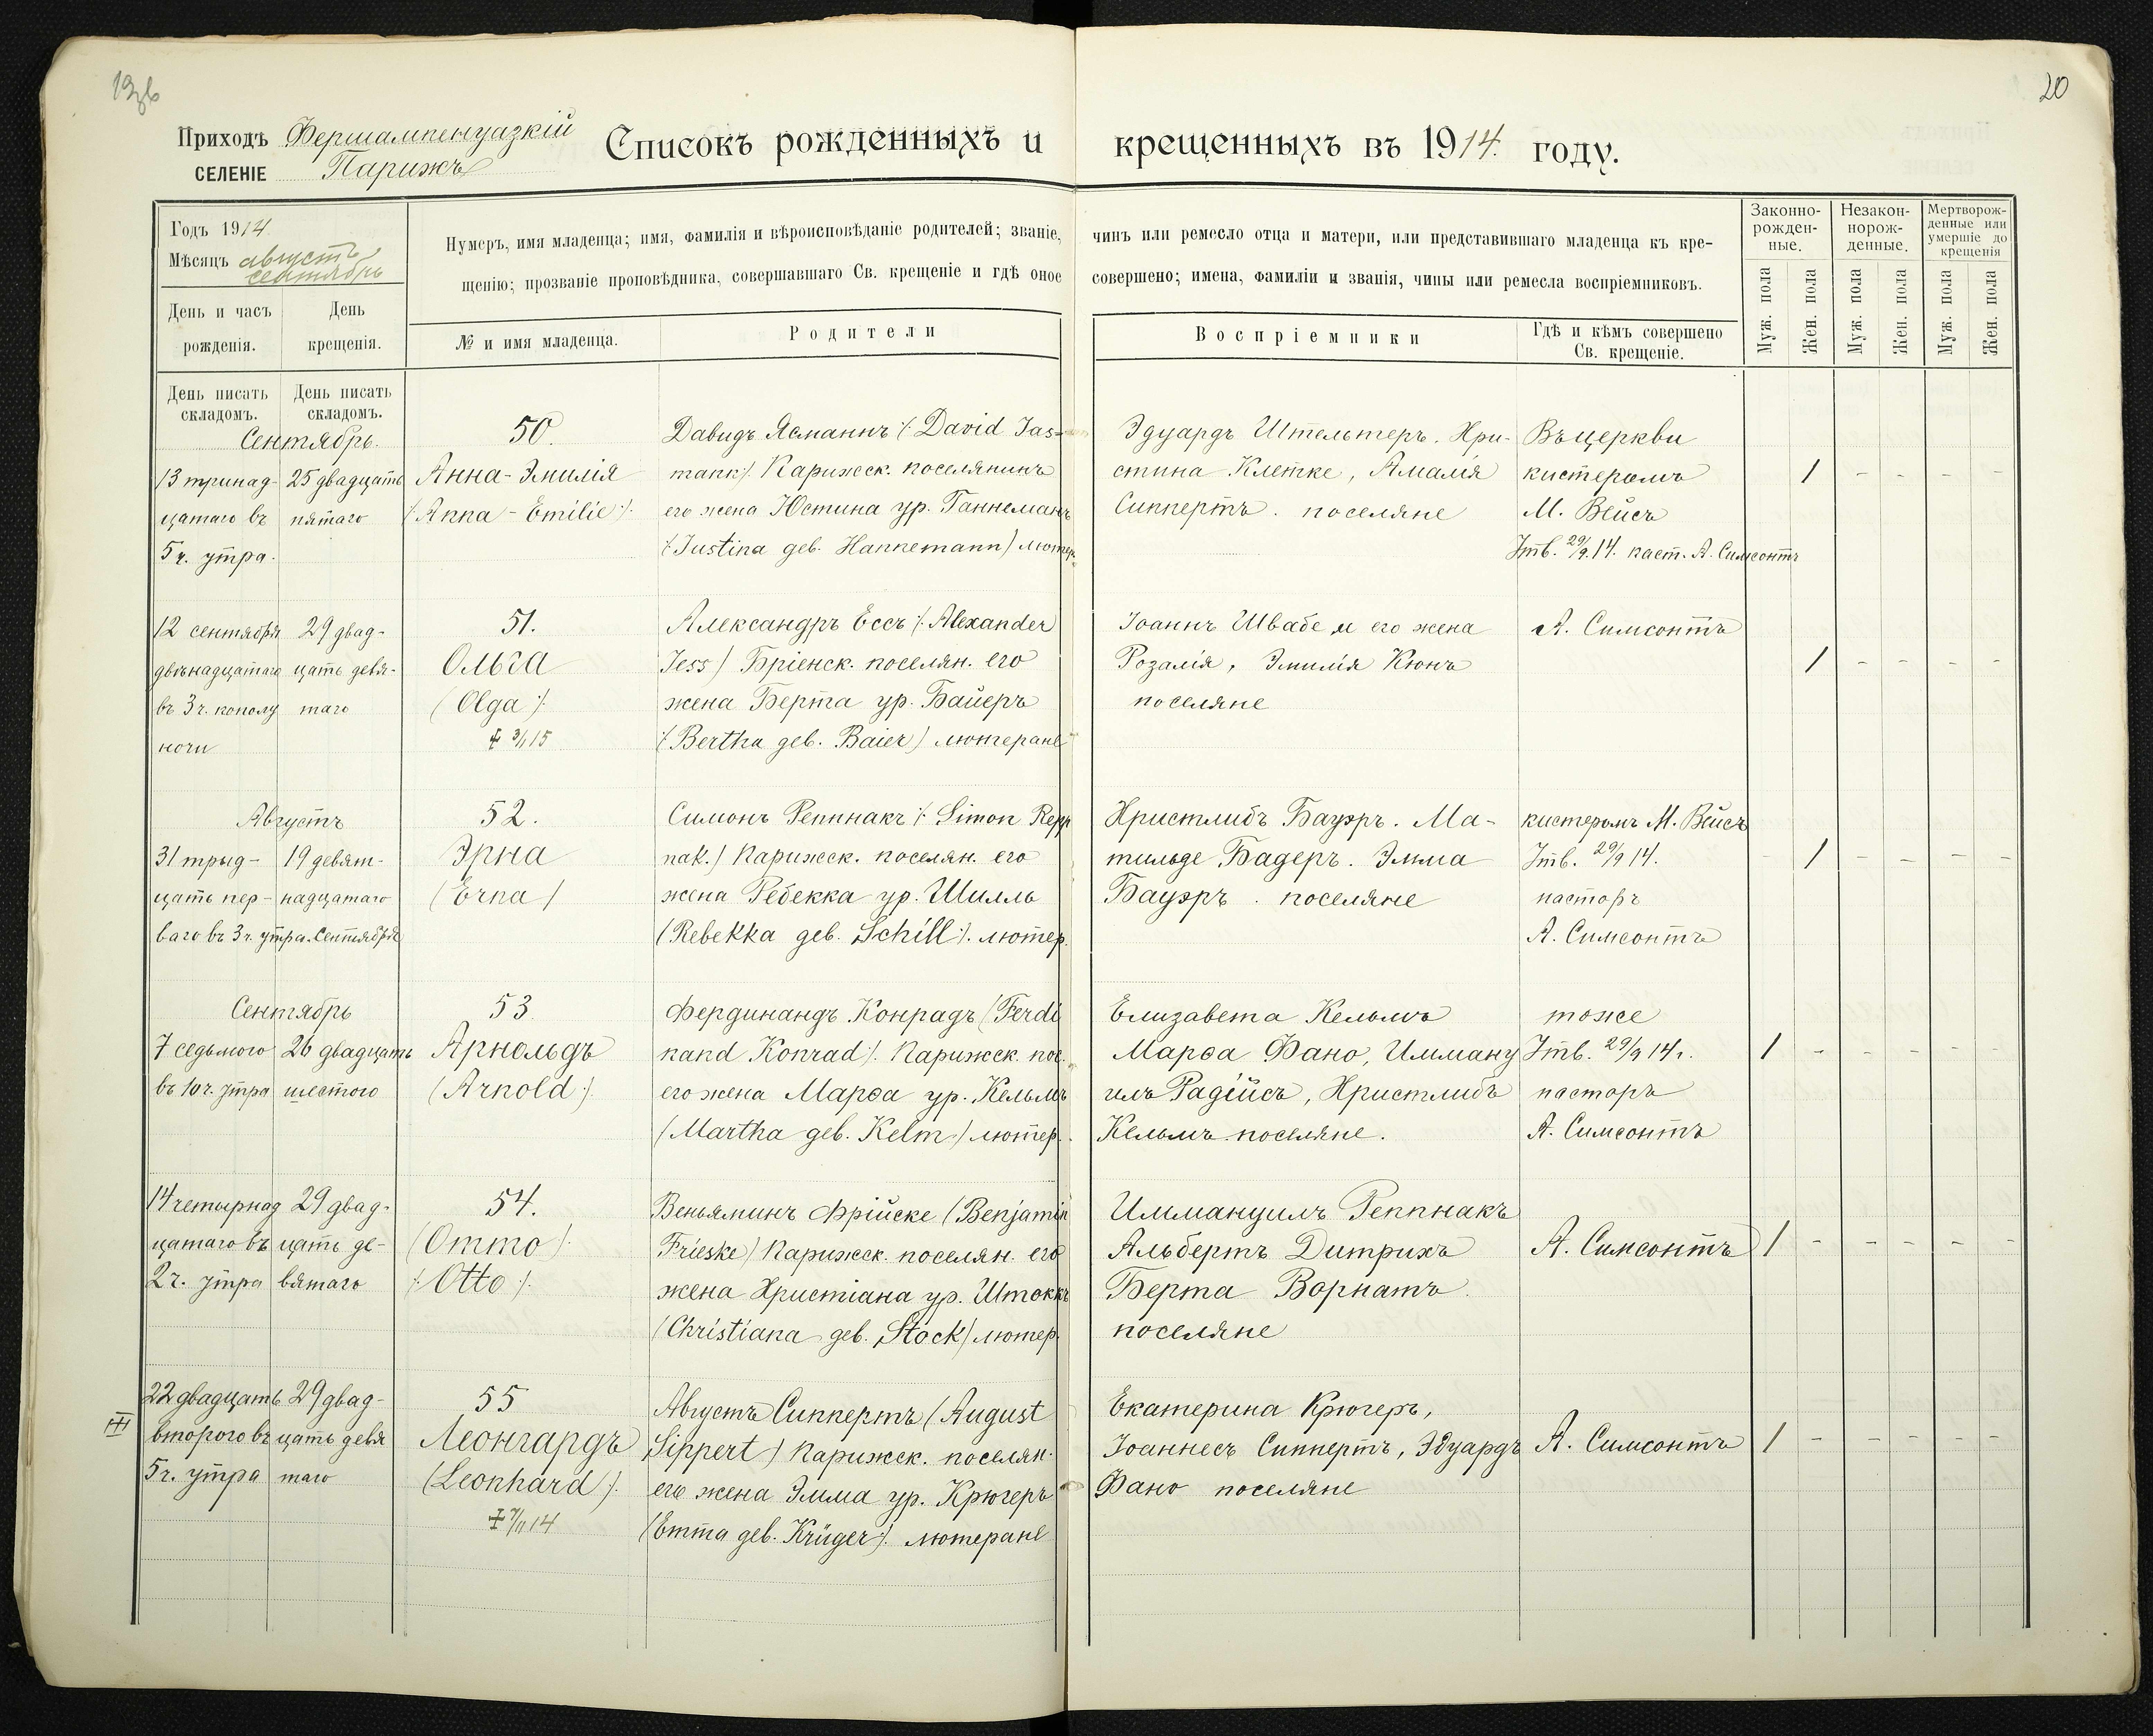 20
Приходъ Фершампенуазкій
селеніе Парижъ
Списокъ рожденныхъ и крещенныхъ въ 1914. году.
Годъ 1914
Мѣсяцъ августъ
сентябрь
День и часъ рожденія.
День крещенія.
Нумеръ, имя младенца; имя, фамилія и вѣроисповѣданіе родителей; званіе, чинъ или ремесло отца и матери, или представившаго младенца къ кре-
щенію; прозваніе проповѣдника, совершавшаго Св. крещеніе и гдѣ оное совершено; имена, фамиліи и званія, чины или ремесла воспріемниковъ.
№ и имя младенца.
Родители
Воспріемники
Гдѣ и кѣмъ совершено
Св. крещеніе.
Законно-
рожден-
ные.
Незакон-
норож-
денные.
Мертворож-
денные или
умершіе до
крещенія
Муж. пола
Жен. пола
Муж. пола
Жен. пола
Муж. пола
Жен. пола
День писать
складомъ.
День писать
складомъ.
Сентябрь.
13 тринад-
цатаго въ
5 ч. утра.
25 двадцать
пятаго
50.
Анна-Эмилія
(Anna-Emilie).
Давидъ Ясманнъ (David Jas-
mann). Парижск. поселянинъ
его жена Юстина ур. Ганнеманъ
(Justina geb. Hannemann) лютер.
Эдуардъ Штельтеръ. Хри-
стина Клетке, Амалія
Сиппертъ. поселяне
Въ церкви
кистеромъ
М. Вейсъ
Утв. 29/9.14. паст. А. Симсонтъ
1 - - - -
12 сентября
двѣнадцатаго
въ 3 ч. пополу
ночи
29 двад-
цать девя-
таго
51.
Ольга
(Olga).
† 3/1 15
Александръ Ессъ (Alexander
Jess) Бріенск. поселян. его
жена Берта ур. Байеръ
(Bertha geb. Baier) лютеране
Іоаннъ Швабе и его жена
Розалія, Эмилія Кюнъ
поселяне
А. Симсонтъ
1 - - - -
Августъ
31 трыд-
цать пер-
ваго въ 3 ч. утра.
19 девят-
надцатаго
Сентября
52.
Эрна
(Erna)
Симонъ Реппнакъ (Simon Repp
nak.) Парижск. поселян. его
жена Ребекка ур. Шилль
(Rebekka geb. Schill). лютер.
Христлибъ Бауэръ. Ма-
тильде Бадеръ. Эмма
Бауэръ. поселяне
кистеромъ М. Вейсъ
Утв. 29/9 14.
пасторъ
А. Симсонтъ
- 1 - - - -
Сентябрь
7 седьмого
въ 10 ч. утра
26 двадцать
шестого
53.
Арнольдъ
(Arnold).
Фердинандъ Конрадъ (Ferdi
nand Konrad). Парижск. пос.
его жена Марѳа ур. Кельмъ
(Martha geb. Kelm) лютер.
Елизавета Кельмъ
Марѳа Фано, Иммануи
илъ Радійсъ, Христлибъ
Кельмъ поселяне.
тоже
Утв. 29/9 14 г.
пасторъ
А. Симсонтъ
1 - - - - -
14 четырнад
цатаго въ
2 ч. утра
29 двад-
цать де-
вятаго
54.
(Отто).
(Otto).
Веньяминъ Фрійске (Benjamin
Frieske) Парижск. поселян. его
жена Христіана ур. Штоккъ
(Christiana geb. Stock) лютер.
Иммануилъ Реппнакъ
Альбертъ Дитрихъ
Берта Ворнатъ.
поселяне
А. Симсонтъ
1 - - - - -
22 двадцать
второго въ
5 ч. утра
29 двад-
цать девя
таго
55
Леонгардъ
(Leonhard).
† 7/11 14
Августъ Сиппертъ (August
Sippert) Парижск. поселян.
его жена Эмма ур. Крюгеръ
(Emma geb. Krüger). лютеране
Екатерина Крюгеръ,
Іоаннесъ Сиппертъ, Эдуардъ
Фано поселяне
А. Симсонтъ
1 - - - - -